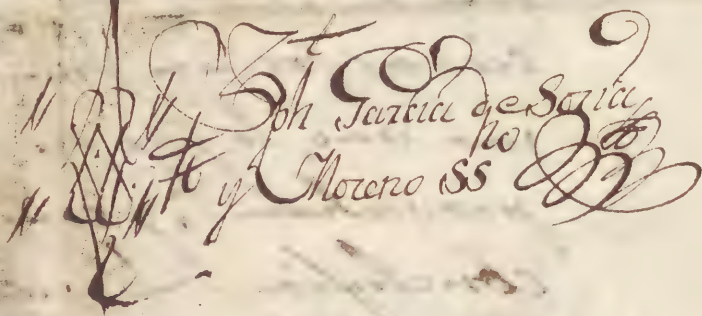 Jph Garcia de Soria
y Moreno SS no